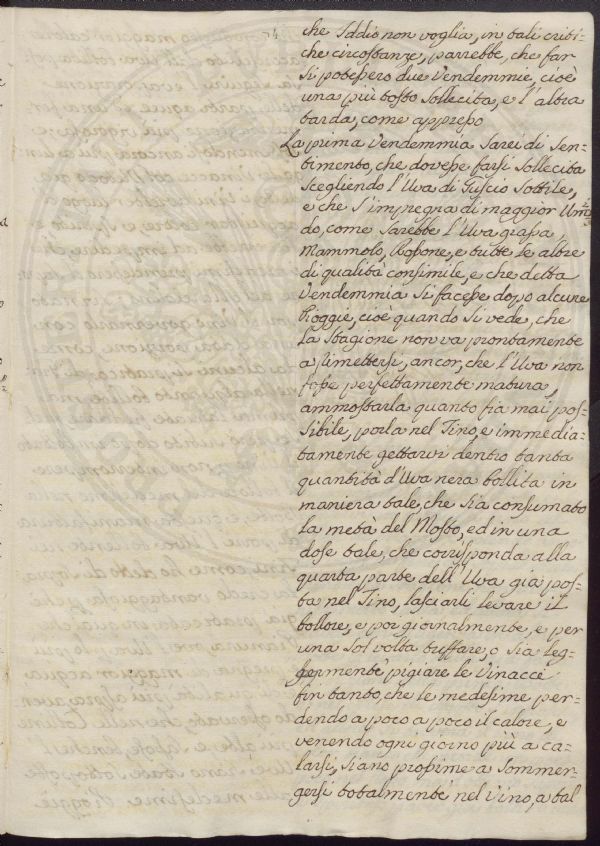 che Iddio non voglia, in tali criti=
che circostanze, parrebbe, che far
si potessero due Vendemmie, cioè
una più tosto sollecita, e l'altra
tarda, come appresso
La prima Vendemmia sarei di sen=
timento, che dovesse farsi sollecita
scegliendo l'Uva di Guscio sottile,
e che s'impregna di maggior Umi=
do, come sarebbe l'Uva grassa
Mammolo, Rossone, e tutte le altre
di qualità consimile, e che detta
Vendemmia si facesse dopo alcune
Pioggie, cioè quando si vede, che
la stagione non va prontamente
a rimettersi, ancor, che l'Uva non
fosse perfettamente matura,
ammostarla quanto fia mai pos=
sibile, porla nel Tino, e immedia=
tamente gettarvi dentro tanta
quantità d'Uva nera bollita in
maniera tale, che sia consumato
la metà del Mosto, ed in una
dose tale, che corrisponda alla
quarta parte dell'Uva già pos=
ta nel Tino, lasciarli levare il
bollore, e poi giornalmente, e per
una sol volta tuffare, o sia leg=
germente pigiare le Vinacce
fin tanto, che le medesime per=
dendo a poco a poco il calore, e
venendo ogni giorno più a ca=
larsi, siano prossime a sommer=
gersi totalmente nel Vino, a tal